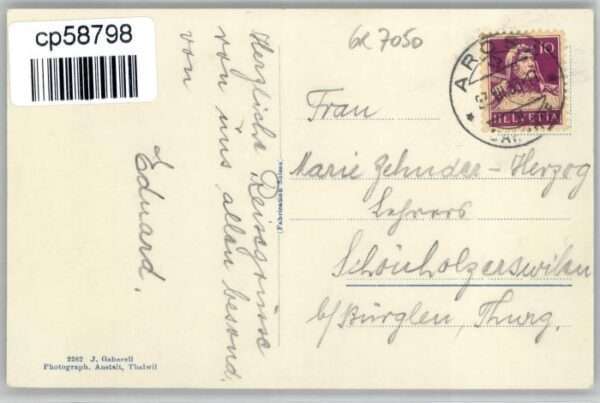 cp58798
GR 7050
Herzliche Reisegrüsse
von uns allen besond.
von
Eduard.
(Fabrication Suisse)
2262 J. Gaberell
Photograph. Anstalt, Thalwil
10
HELVETIA
Frau
Marie Zehnder-Herzog
Lehrers
Schönholzerswilen
b/Bürglen, Thurg.